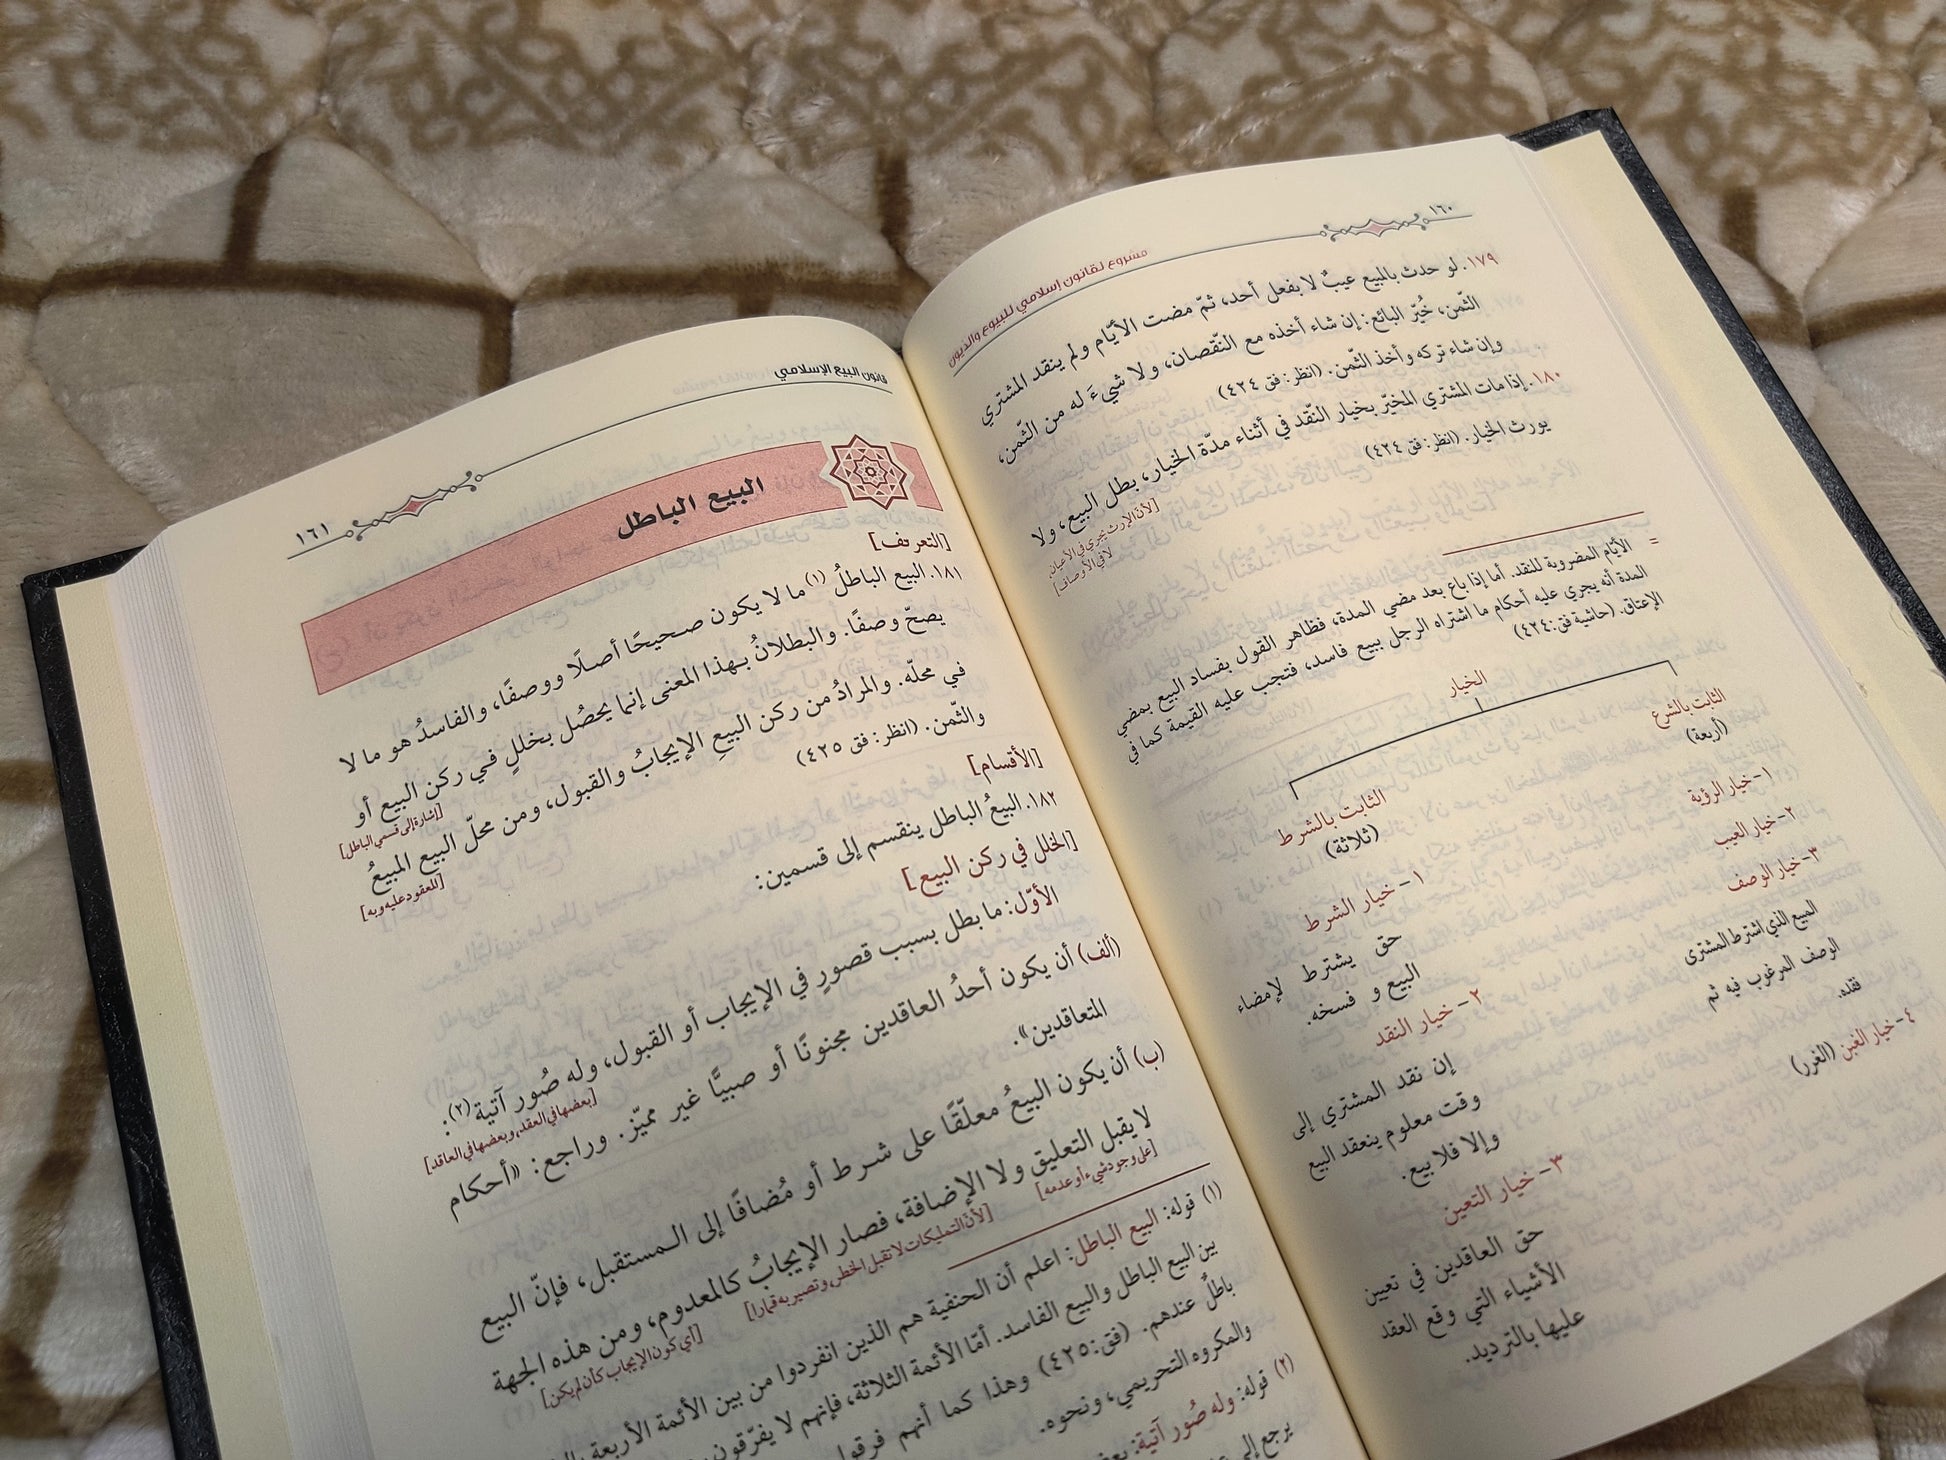 ١٦٠
مشروع لقانون إسلامي للبيوع والديون
١٧٩. لو حدث بالمبيع عيبٌ لا بفعل أحد، ثمّ مضت الأيّام ولم ينقد المشتري
الثّمن، خُيّر البائع: إن شاء أخذه مع النّقصان، ولا شيءَ له من الثّمن،
وإن شاء تركه وأخذ الثّمن. (انظر: فق ٤٢٤)
١٨٠. إذا مات المشتري المخيّر بخيار النّقد في أثناء مدّة الخيار، بطل البيع، ولا
[لأنّ الإرث يجري في الأعيان
لا في الأوصاف]
يورث الخيار. (انظر: فق ٤٢٤)
= الأيّام المضروبة للنقد. أما إذا باع بعد مضي المدة، فظاهر القول بفساد البيع بمضي
المدة أنه يجري عليه أحكام ما اشتراه الرجل ببيع فاسد، فتجب عليه القيمة كما في
الإعتاق. (حاشية فق: ٤٢٤)
الخيار
الثابت بالشرع
(أربعة)
١- خيار الرؤية
٢- خيار العيب
٣- خيار الوصف
المبيع الذي اشترط المشتري
الوصف المرغوب فيه ثم
فقده.
٤- خيار الغبن (الغرر)
الثابت بالشرط
(ثلاثة)
١- خيار الشرط
حق يشترط لإمضاء
البيع و فسخه.
٢- خيار النقد
إن نقد المشتري إلى
وقت معلوم ينعقد البيع
وإلا فلا بيع.
٣- خيار التعين
حق العاقدين في تعيين
الأشياء التي وقع العقد
عليها بالترديد.
قانون البيع الإسلامي
١٦١
البيع الباطل
[التعريف]
١٨١. البيع الباطلُ (١) ما لا يكون صحيحًا أصلًا ووصفًا، والفاسدُ هو ما لا
يصحّ وصفًا. والبطلانُ بهذا المعنى إنما يحصُل بخللٍ في ركن البيع أو
[إشارة إلى قسمي الباطل]
في محلّه. والمرادُ من ركن البيعِ الإيجابُ والقبول، ومن محلّ البيع المبيعُ
[المعقود عليه وبه]
والثّمن. (انظر: فق ٤٢٥)
[الأقسام]
١٨٢. البيعُ الباطل ينقسم إلى قسمين:
[الخلل في ركن البيع]
الأوّل: ما بطل بسبب قصورٍ في الإيجاب أو القبول، وله صُور آتية (٢):
[بعضها في العقد، وبعضها في العاقد]
(ألف) أن يكون أحدُ العاقدين مجنونًا أو صبيًّا غير مميّز. وراجع: «أحكام
المتعاقدين».
(ب) أن يكون البيعُ معلّقًا على شرط أو مُضافًا إلى المستقبل، فإنّ البيع
[على وجود شيء أو عدمه]
لا يقبل التعليق ولا الإضافة، فصار الإيجابُ كالمعدوم، ومن هذه الجهة
[لأن التمليكات لا تقبل الخطر، وتصير به قمارا]
[أي كون الإيجاب كأن لم يكن]
(١) قوله: البيع الباطل: اعلم أن الحنفية هم الذين انفردوا من بين الأئمة الأربعة
بين البيع الباطل والبيع الفاسد. أمّا الأئمة الثلاثة، فإنهم لا يفرّقون
باطلٌ عندهم. (فق: ٤٢٥) وهذا كما أنهم فرقوا
والمكروه التحريمي، ونحوه.
(٢) قوله: وله صُور آتية:
يرجع إلى